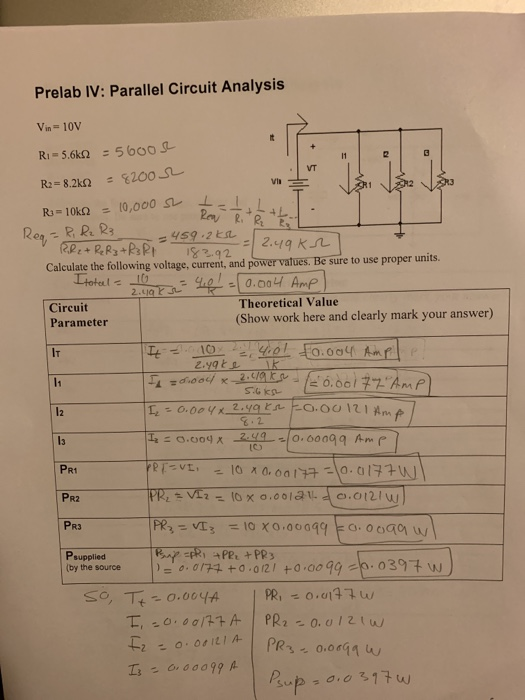 Prelab IV: Parallel Circuit Analysis
Vin = 10V
R1 = 5.6kΩ = 5600 Ω
R2 = 8.2kΩ = 8200 Ω
R3 = 10kΩ = 10,000 Ω 1/Req = 1/R1 + 1/R2 + 1/R3
It
+
VT
Vin
I1
I2
I3
R1
R2
R3
Req = R1 R2 R3 / R1R2 + R2R3 + R3R1 = 459.2kΩ / 183.92 = 2.49 KΩ
Calculate the following voltage, current, and power values. Be sure to use proper units.
Itotal = 10 / 2.49KΩ = 4.01/K = 0.004 Amp
Circuit Parameter
Theoretical Value
(Show work here and clearly mark your answer)
IT
It = 10 / 2.49kΩ = 4.01 / 1K = 0.004 Amp
I1
I1 = 0.004 x 2.49kΩ / 5.6kΩ = 0.00177 Amp
I2
I2 = 0.004 x 2.49kΩ / 8.2 = 0.00121 Amp
I3
I3 = 0.004 x 2.49 / 10 = 0.00099 Amp
PR1
= VI1 = 10 x 0.00177 = 0.0177W
PR2
PR2 = VI2 = 10 x 0.00121 = 0.0121W
PR3
PR3 = VI3 = 10 x 0.00099 = 0.0099 W
Psupplied
(by the source
Psup = PR1 + PR2 + PR3
= 0.0177 + 0.0121 + 0.0099 = 0.0397 W
So, It = 0.004A
I1 = 0.00177 A
I2 = 0.00121 A
I3 = 0.00099 A
PR1 = 0.0177 W
PR2 = 0.0121 W
PR3 = 0.0099 W
Psup = 0.0397 W